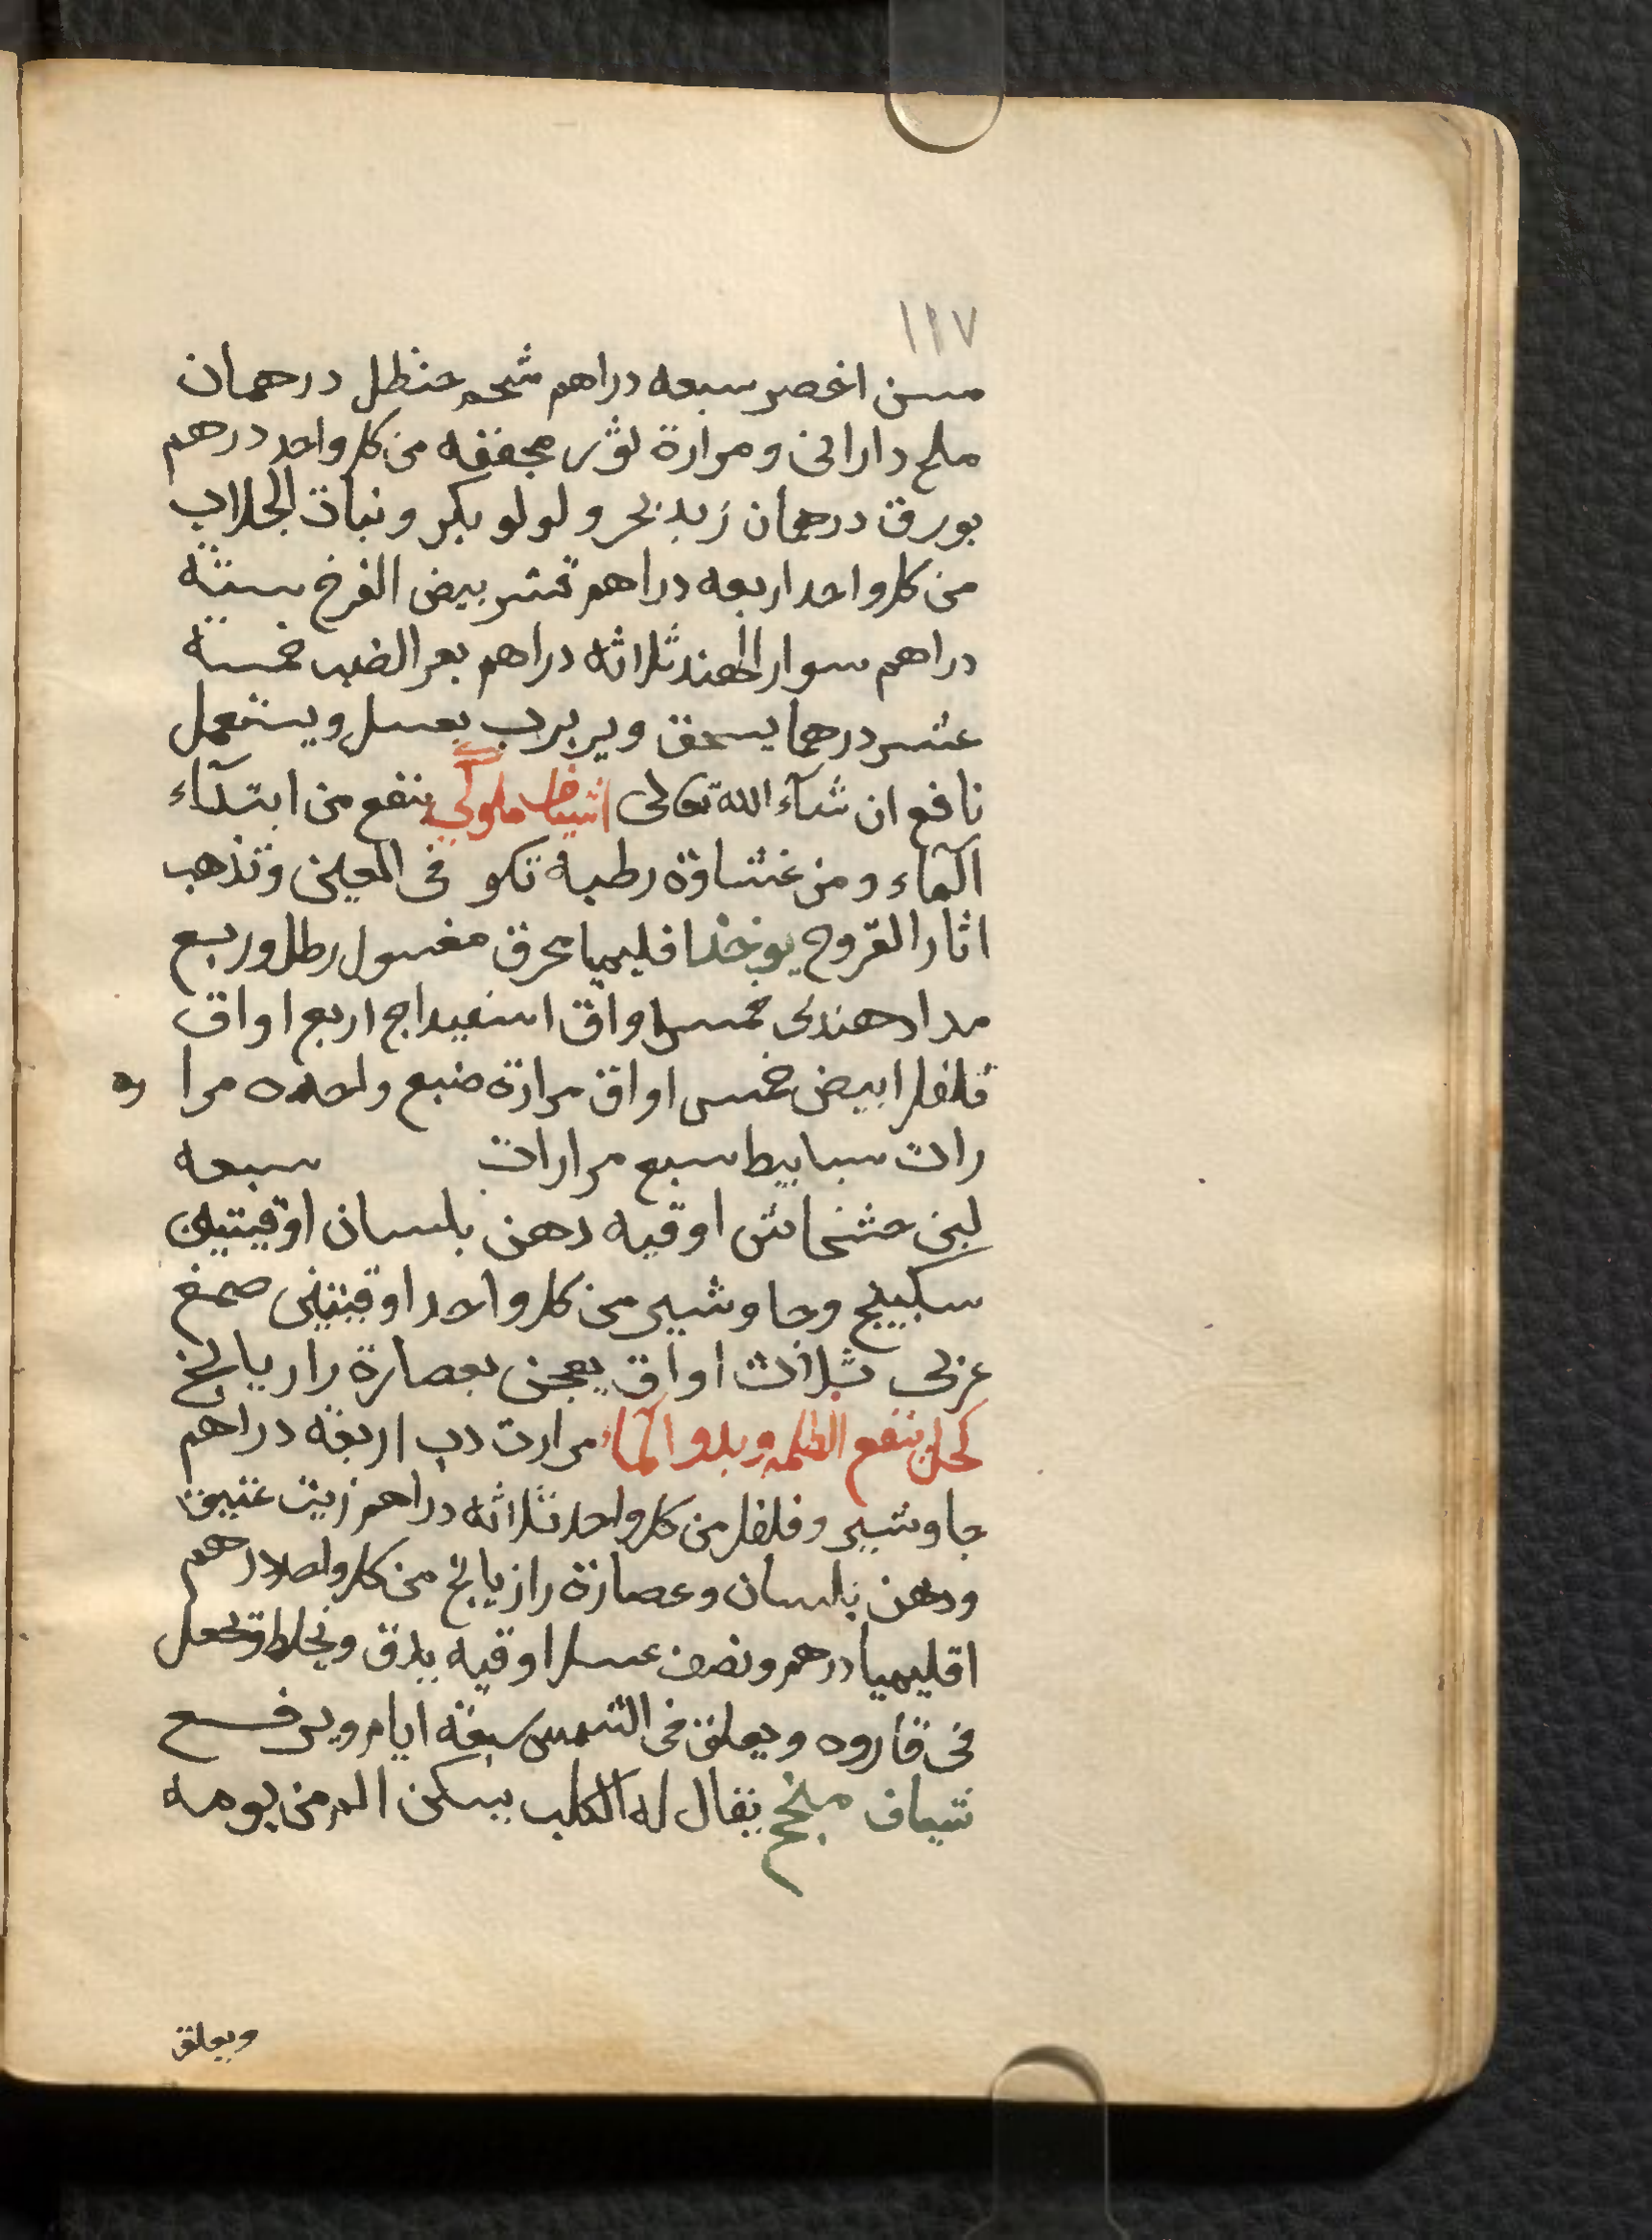 ١١٧
مسن اخضر سبعه دراهم شحم حنظل درهمان
ملح داراني ومرارة ثور مجففه من كل واحد درهم
بورق درهمان زبد بحر ولولو بكر ونبات الجلاب
من كل واحد اربعه دراهم قشر بيض الفرخ ستة
دراهم سوار الهند ثلاثه دراهم بعر الضب خمسه
عشر درهما يسحق ويربرب بعسل ويستعمل
نافع ان شآء الله تعالى اشياف ملوكي ينفع من ابتدآء
المآء ومن غشاوة رطبة تكو في العين وتذهب
اثار القروح يوخذ اقليميا محرق مغسول رطل وربع
مداد هندي خمس اواق اسفيداج اربع اواق
فلفل ابيض خمس اواق مرارة ضبع واحده مرا ره
رات سبابيط سبع مرارات سبعه
لبن خشخاش اوقيه دهن بلسان اوقيتين
سكبينج وجاوشير من كل واحد اوقيتين صمغ
عربي ثلاث اواق يعجن بعصارة رازيانج
كحل ينفع الظلمه وبدو المآء مرارت دب اربعة دراهم
جاوشير وفلفل من كل واحد ثلاثه دراهم زيت عتيق
ودهن بلسان وعصارة رازيانج من كل واحد درهم
اقليميا درهم ونصف عسل اوقيه يدق ويخلط ويجعل
في قاروه ويعلق في الشمس سبعة ايام ويرفع
شياف منجح يقال له الكلب يسكن الم من يومه
ويعلق